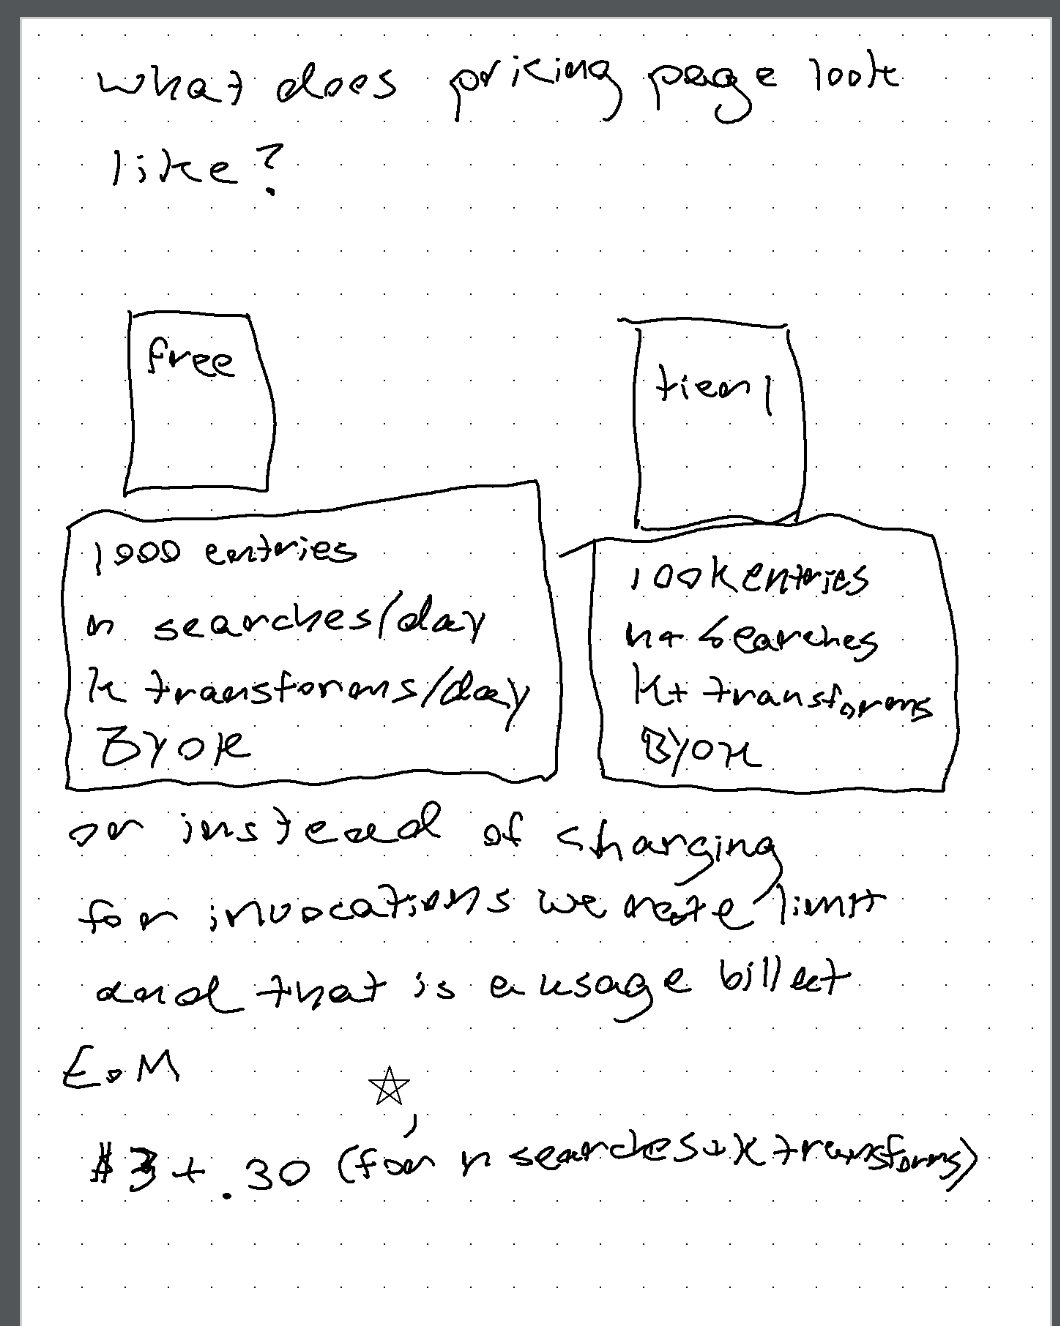 what does pricing page look
like?
free
tier 1
1000 entries
n searches/day
k transforms/day
BYOK
100k entries
n+ searches
k+ transforms
BYOK
or instead of charging
for invocations we rate limit
and that is a usage billed
EoM
$3 + .30 (for n searches + k transforms)